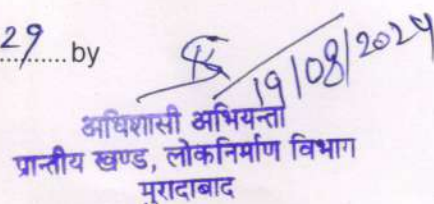 29 by
19/08/2024
अधिशासी अभियन्ता
प्रान्तीय खण्ड, लोकनिर्माण विभाग
मुरादाबाद